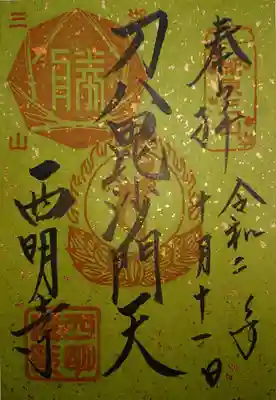 奉拝
令和二年
十月十一日
刀八毘沙門天
西明寺
三
山